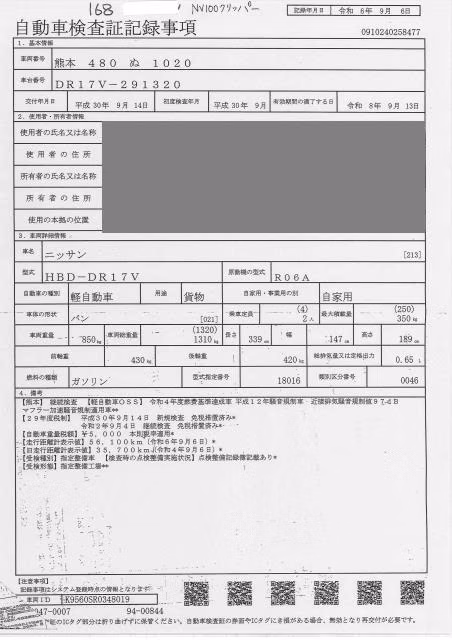 168 NV100クリッパー
記録年月日 令和 6年 9月 6日
自動車検査証記録事項 0910240258477
1. 基本情報
車両番号 熊本 480 ぬ 1020
車台番号 DR17V-291320
交付年月日 平成 30年 9月 14日 初度検査年月 平成 30年 9月 有効期間の満了する日 令和 8年 9月 13日
2. 使用者・所有者情報
使用者の氏名又は名称
使用者の住所
所有者の氏名又は名称
所有者の住所
使用の本拠の位置
3. 車両詳細情報
車名 ニッサン [213]
型式 HBD-DR17V 原動機の型式 R06A
自動車の種別 軽自動車 用途 貨物 自家用・事業用の別 自家用
車体の形状 バン [021] 乗車定員 (4) 2人 最大積載量 (250) 350kg
車両重量 850kg 車両総重量 (1320) 1310kg 長さ 339cm 幅 147cm 高さ 189cm
前軸重 430kg 後軸重 420kg 総排気量又は定格出力 0.65 L
燃料の種類 ガソリン 型式指定番号 18016 類別区分番号 0046
4. 備考
【熊本】 継続検査 【軽自動車OSS】 令和4年度燃費基準達成車 平成12年騒音規制車 近接排気騒音規制値97dB
マフラー加速騒音規制適用車**
【29年度税制】 平成30年9月14日 新規検査 免税措置済み*
令和2年9月4日 継続検査 免税措置済み*
【自動車重量税額】 ¥5,000 本則税率適用*
【走行距離計表示値】 56,100km (令和6年9月6日)*
【旧走行距離計表示値】 35,700km (令和4年9月6日)*
【受検種別】 指定整備車 【検査時の点検整備実施状況】 点検整備記録簿記載あり*
【受検形態】 指定整備工場**
【注意事項】
記録事項はシステム登録時点の情報となります
車両ID K9560SR0348019
047-0007 94-00844